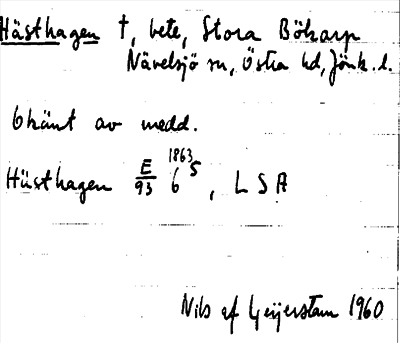 Hästhagen †, bete, Stora Bökarp
Nävelsjö sn, Östra hd, Jönk. l.
Okänt av medd.
Hästhagen E/93 1863 6 5, L S A
Nils af Geijerstam 1960